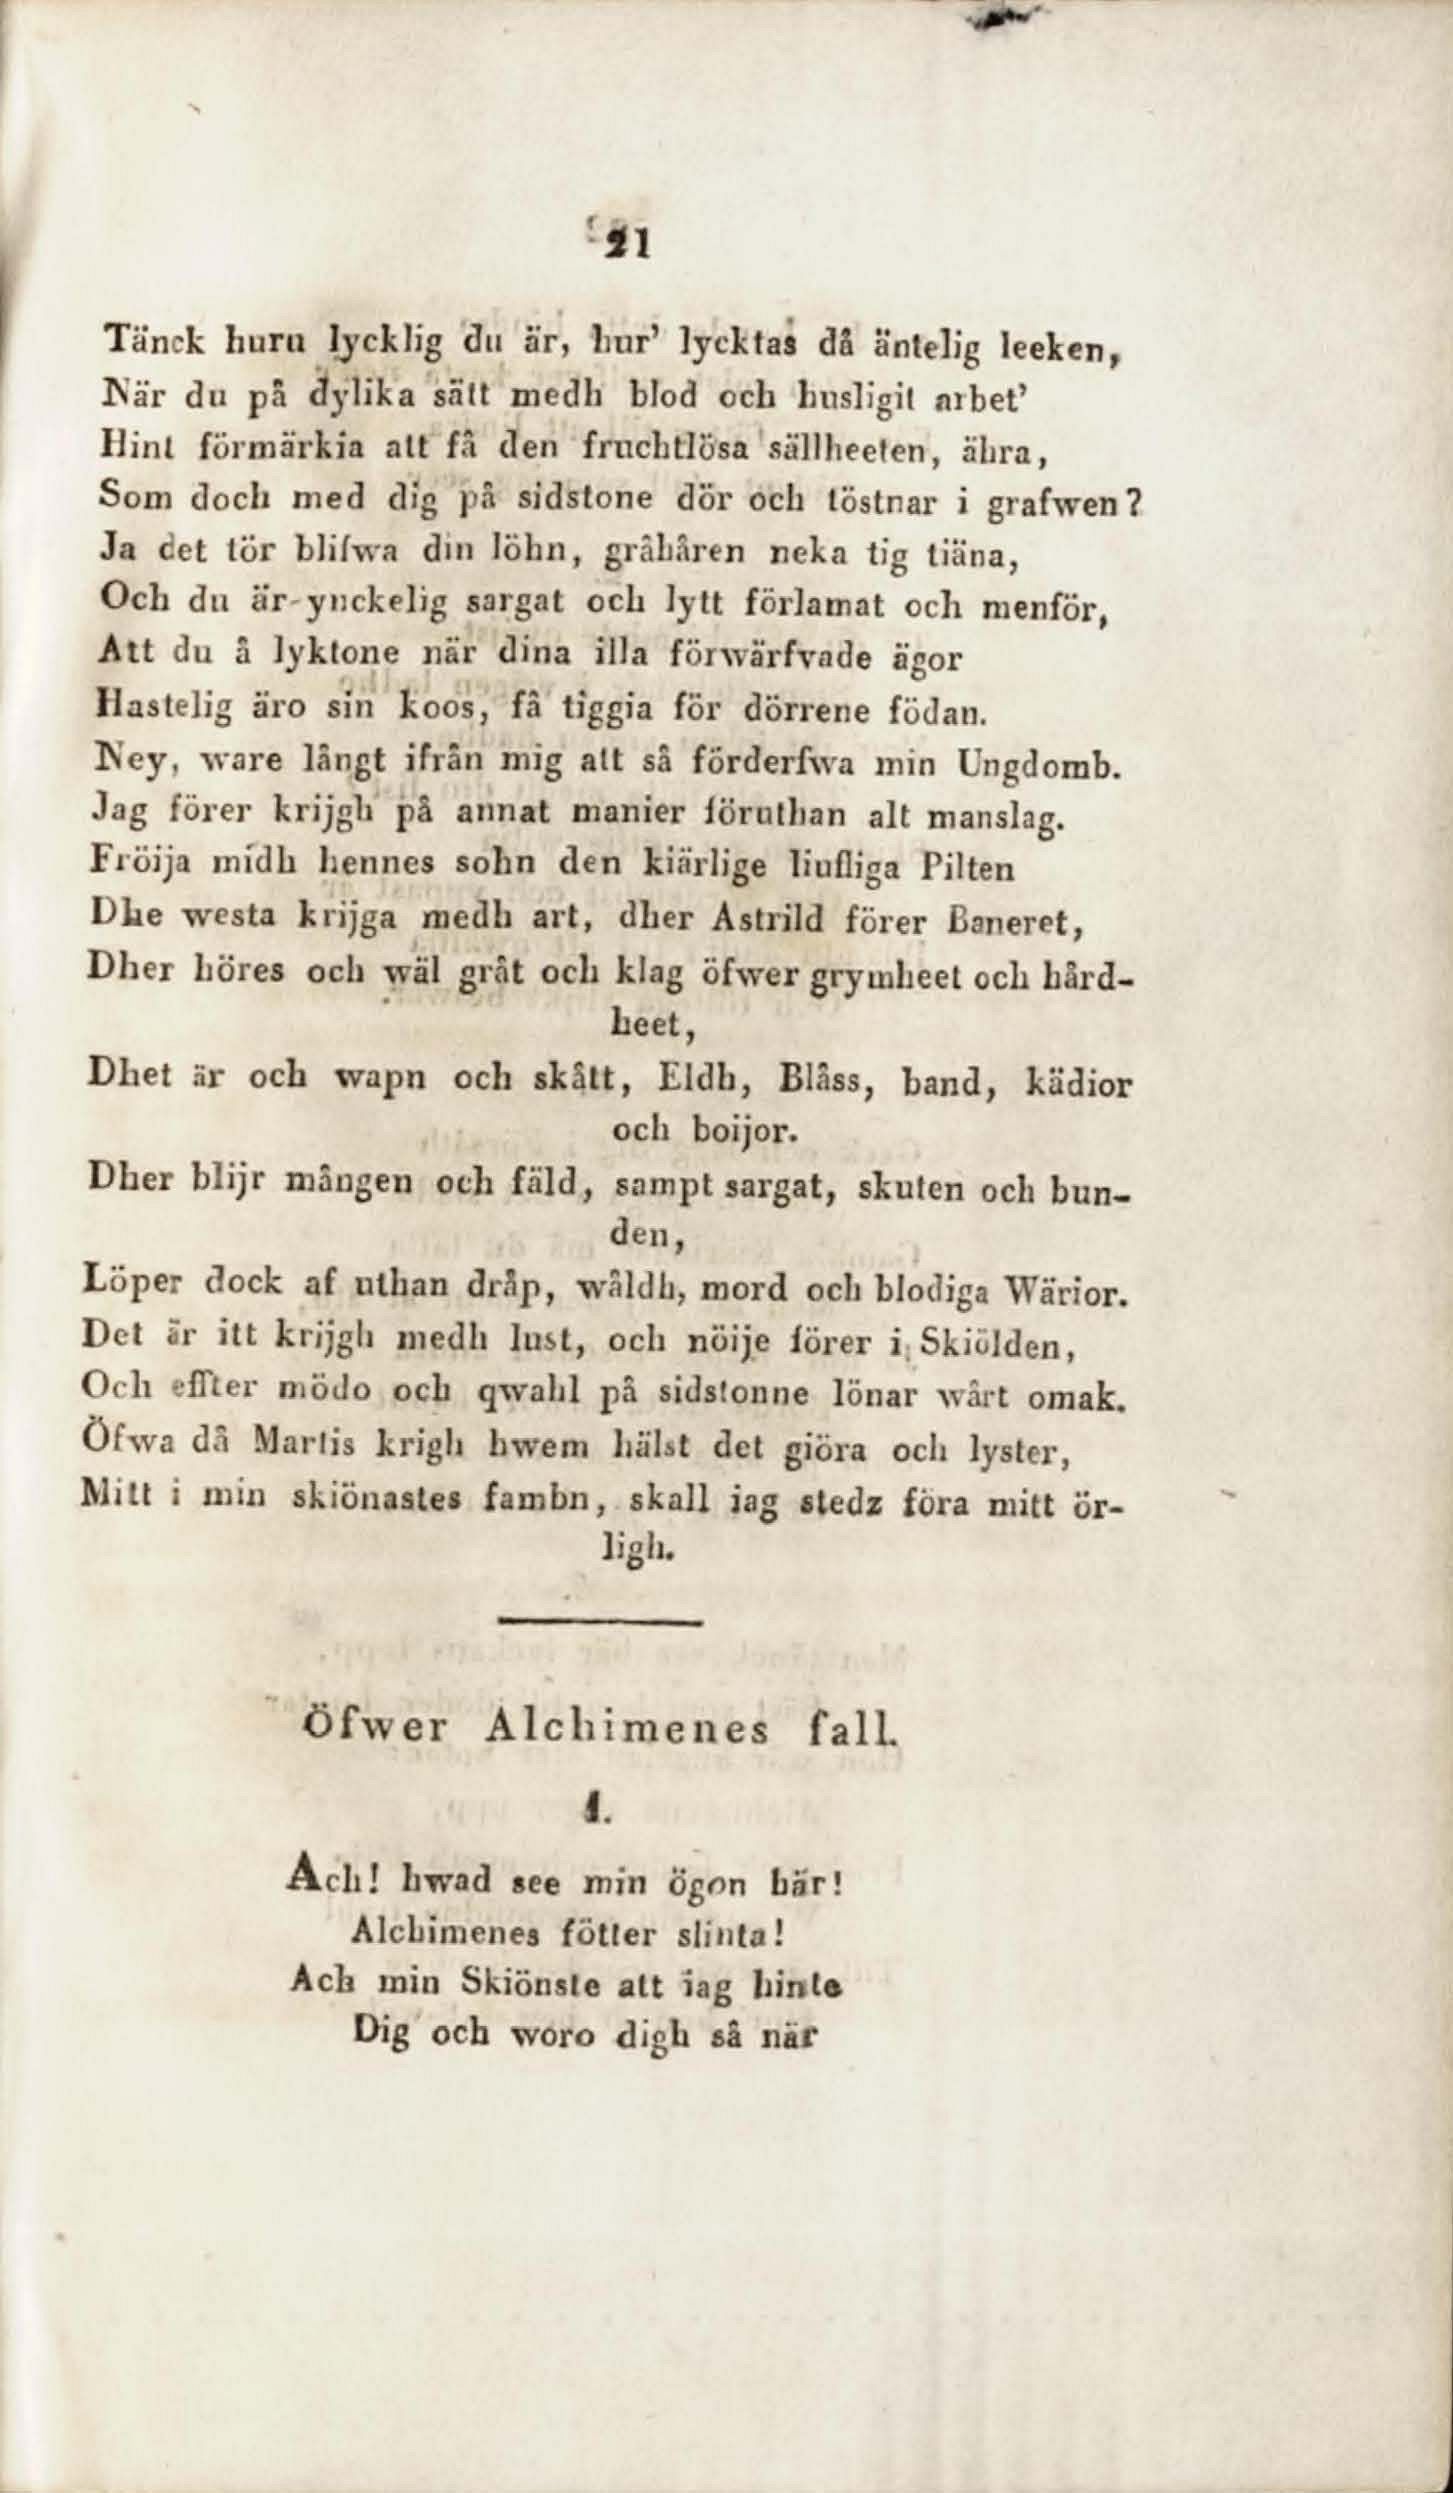 21
Tänck huru lycklig du är, hur' lycktas då äntelig leeken,
När du på dylika sätt medh blod och husligit arbet'
Hint förmärkia att få den fruchtlösa sällheeten, ähra,
Som doch med dig på sidstone dör och töstnar i grafwen?
Ja det tör blifwa din löhn, gråhåren neka tig tiäna,
Och du är ynckelig sargat och lytt förlamat och menför,
Att du å lyktone när dina illa förwärfvade ägor
Hastelig äro sin koos, få tiggia för dörrene födan.
Ney, ware långt ifrån mig att så förderfwa min Ungdomb.
Jag förer krijgh på annat manier föruthan alt manslag.
Fröija midh hennes sohn den kiärlige liufliga Pilten
Dhe westa krijga medh art, dher Astrild förer Baneret,
Dher höres och wäl gråt och klag öfwer grymheet och hård-
heet,
Dhet är och wapn och skått, Eldh, Blåss, band, kädior
och boijor.
Dher blijr mången och fäld, sampt sargat, skuten och bun-
den,
Löper dock af uthan dråp, wåldh, mord och blodiga Wärior.
Det är itt krijgh medh lust, och nöije förer i Skiölden,
Och effter mödo och qwahl på sidstonne lönar wårt omak.
Öfwa då Martis krigh hwem hälst det giöra och lyster,
Mitt i min skiönastes fambn, skall iag stedz föra mitt ör-
ligh.
Öfwer Alchimenes fall.
1.
Ach! hwad see min ögon här!
Alchimenes fötter slinta!
Ach min Skiönste att iag hinte
Dig och woro digh så när